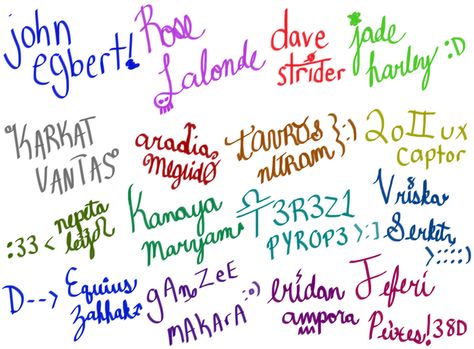 john
egbert!
Rose
Lalonde
dave
strider
jade
harley :D
KARKAT
VANTAS
aradia
MeguidO
TAVROS
nITRAM }:)
2oIIux
Captor
:33 < nepeta
leijon
Kanaya
Maryam
T3R3Z1
PYROP3 >:]
Vriska
Serket
>::::)
D--> Equius
Zahhak
gAmZeE
mAKArA
:o)
eridan
ampora
Feferi
Peixes! 38D